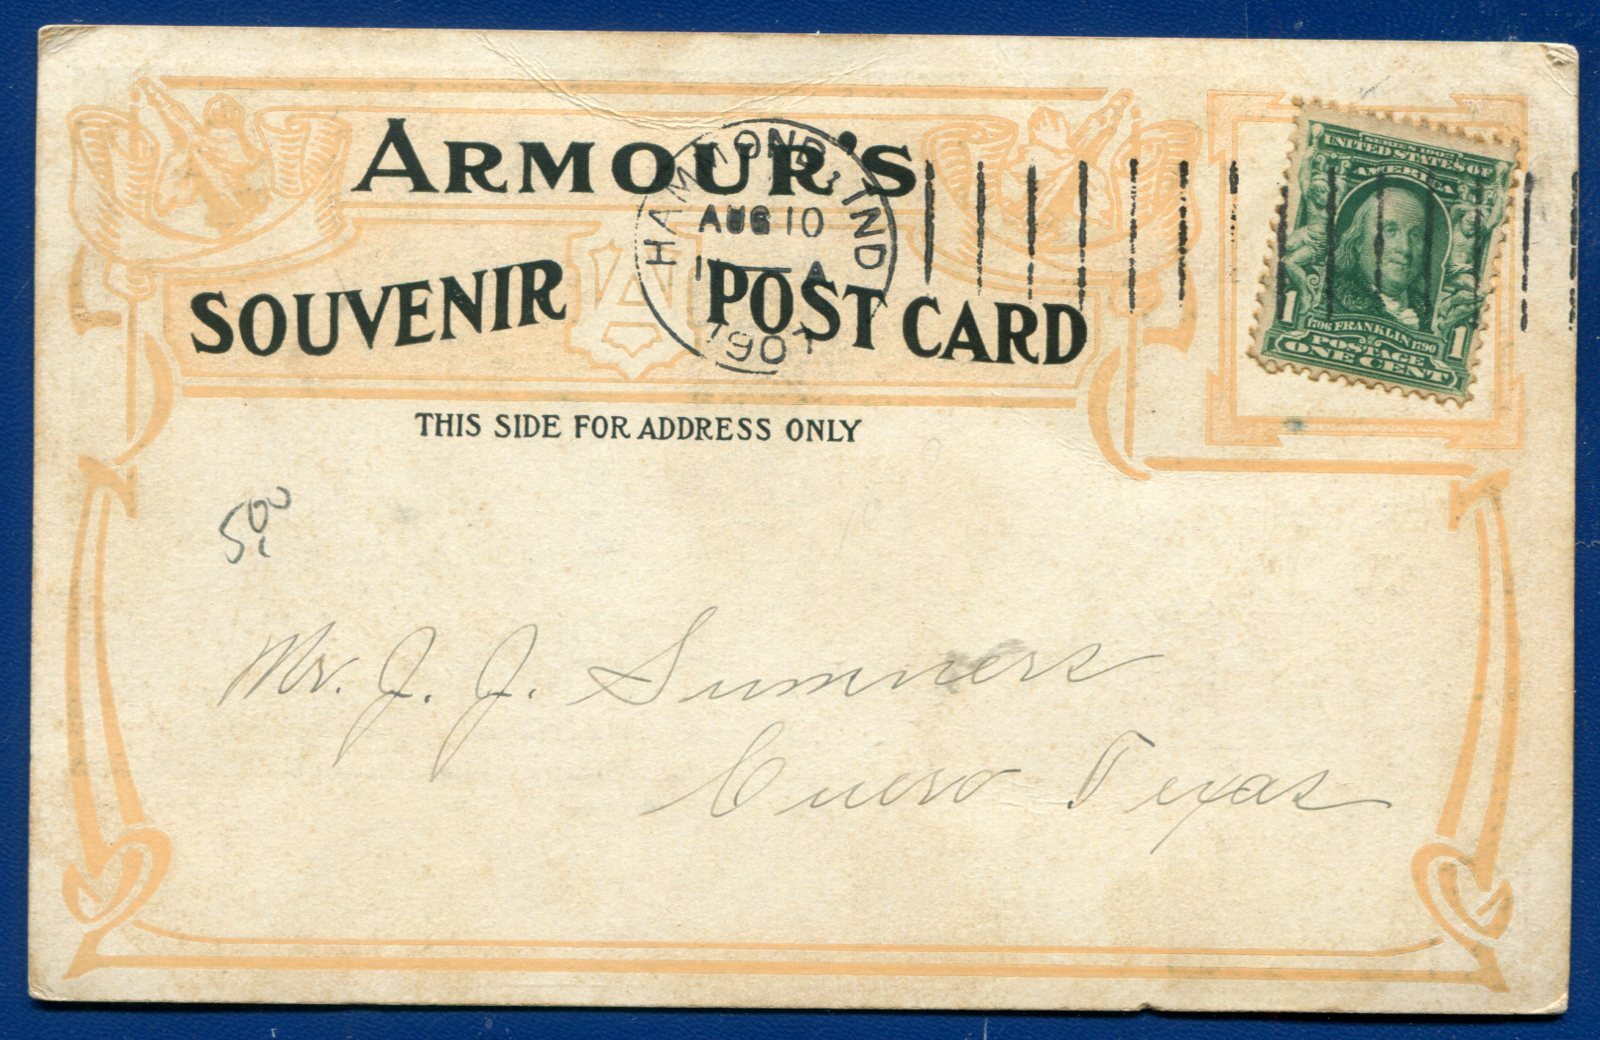 ARMOUR'S
SOUVENIR POST CARD
HAMMOND, IND
AUG 10
1907
SERIES 1902
UNITED STATES OF
AMERICA
1706 FRANKLIN 1790
1 POSTAGE 1
ONE CENT
THIS SIDE FOR ADDRESS ONLY
5.00
Mr. J. J. Summers
Cuero Texas